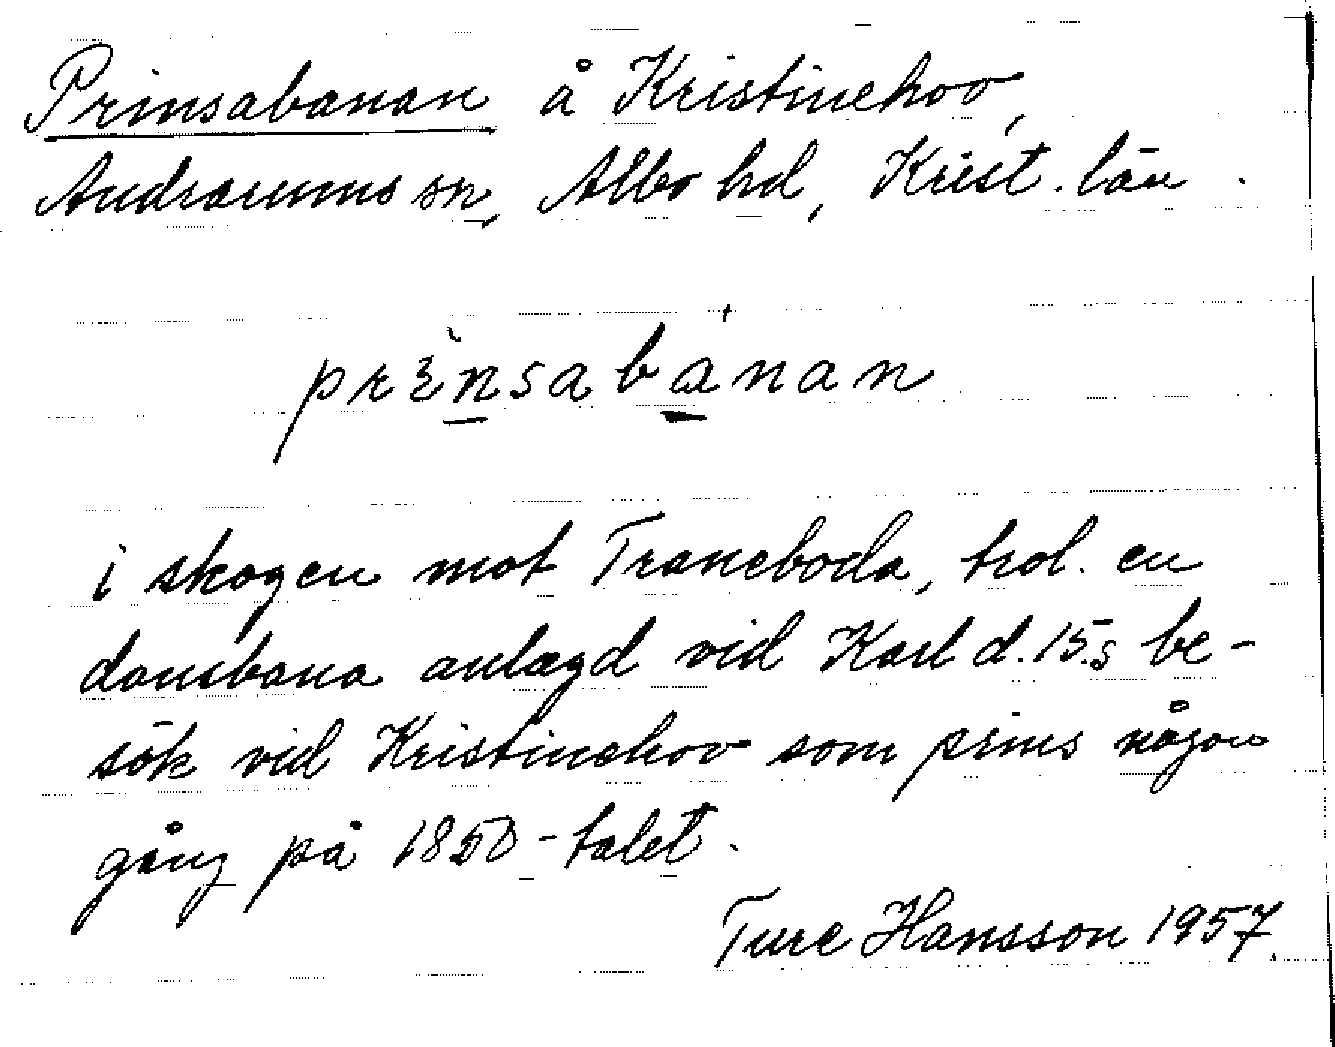 Prinsabanan å Kristinehov,
Andrarums sn, Albo hd, Krist. län.
prɛ̀nsabánan
i skogen mot Traneboda, trol. en
dansbana anlagd vid Karl d. 15.s be-
sök vid Kristinehov som prins någon
gång på 1850-talet.
Ture Hansson 1957.